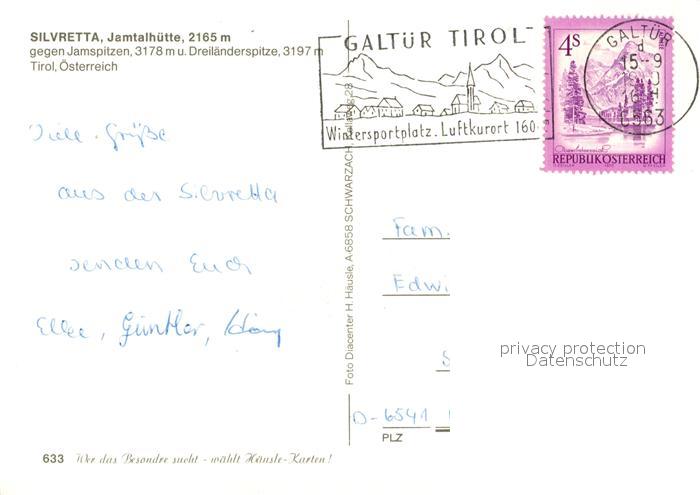 SILVRETTA, Jamtalhütte, 2165 m
gegen Jamspitzen, 3178 m u. Dreiländerspitze, 3197 m
Tirol, Österreich
GALTÜR TIROL
Wintersportplatz. Luftkurort 160
4S
REPUBLIK ÖSTERREICH
GALTÜR
d
15--9
6563
Viele Grüße
aus der Silvretta
senden Euch
Günther,
Foto Diacenter H. Häusle, A-6858 SCHWARZACH,
Fam.
Edwi
S
D-6541
PLZ
privacy protection
Datenschutz
633 Wer das Besondre sucht - wählt Häusle-Karten!